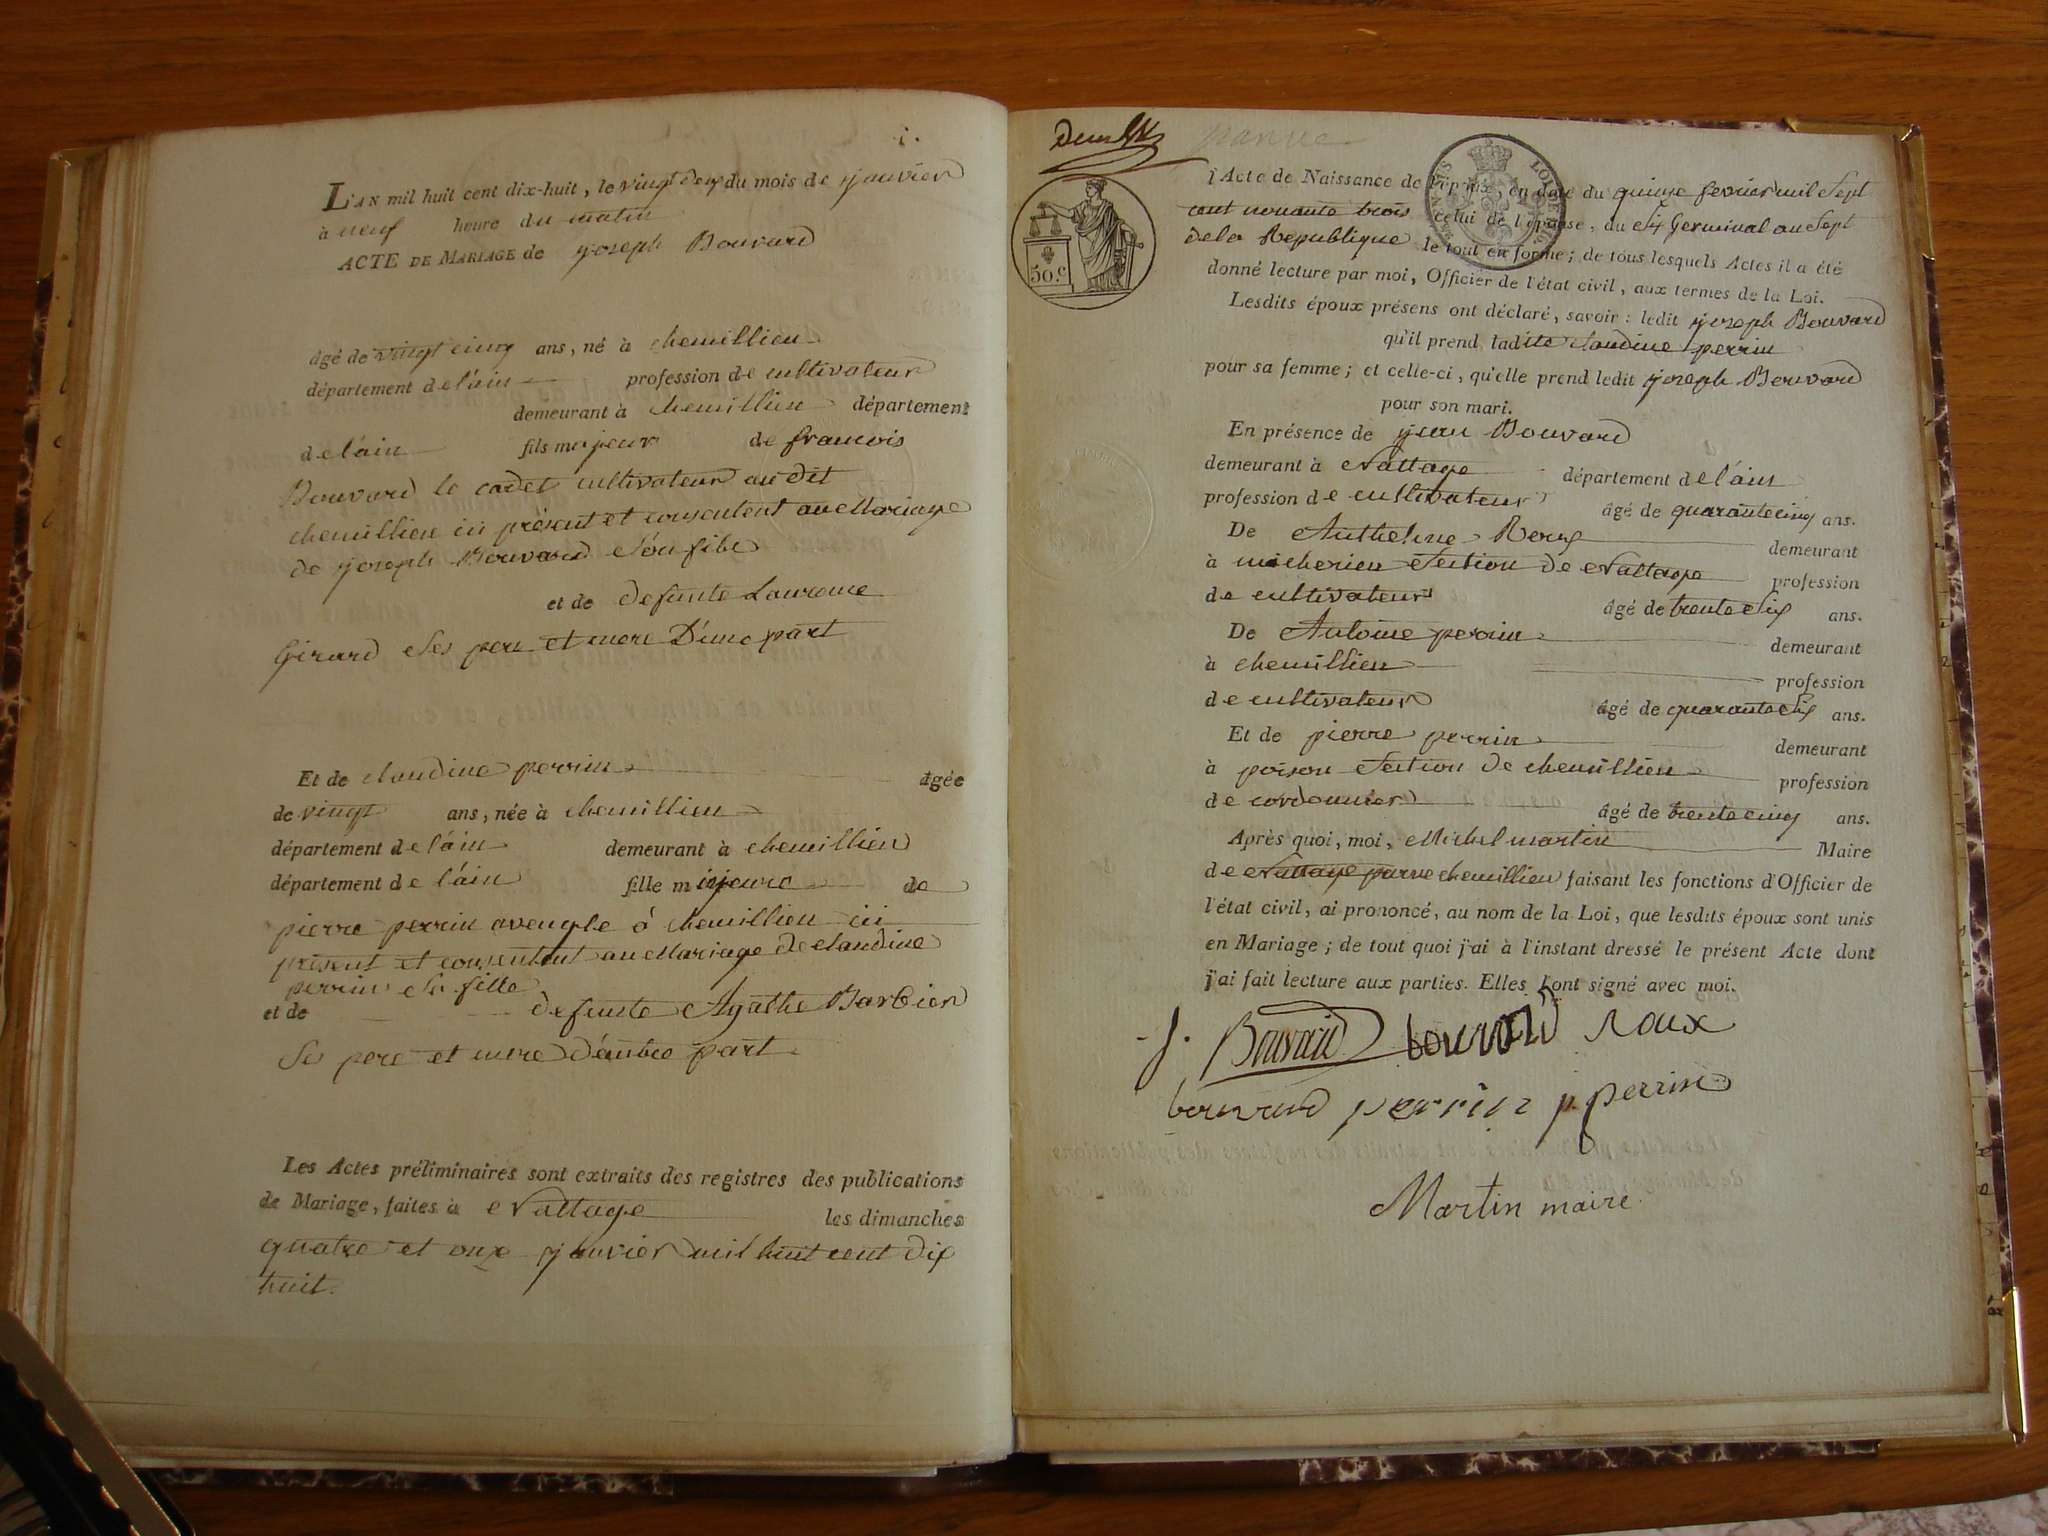 L'AN mil huit cent dix-huit, le vingt deux du mois de janvier
à neuf heure du matin
ACTE DE MARIAGE de joseph Bouvard
âgé de vingt cinq ans, né à chemillieu
département de l'ain profession de cultivateur
demeurant à chemillieu département
de l'ain fils majeur de francois
Bouvard le cadet cultivateur au dit
chemillieu ici présent et consentent au Mariage
de joseph Bouvard son fils
et de defunte Laurence
Girard Ses pere et mere D'une part
Et de claudine perrin âgée
de vingt ans, née à chemillieu
département de l'ain demeurant à chemillieu
département de l'ain fille mineure de
pierre perrin aveugle à chemillieu ici
présent et consentent au Mariage de claudine
perrin Sa fille
et de defunte Agathe Barbier
Ses pere et mere d'autre part
Les Actes préliminaires sont extraits des registres des publications
de Mariage, faites à Nattage les dimanches
quatre et onze janvier mil huit cent dix
huit.
l'Acte de Naissance de l'époux, en date du quinze fevrier mil Sept
cent nonante trois celui de l'épouse, du Six Germinal an Sept
de la Republique le tout en forme; de tous lesquels Actes il a été
donné lecture par moi, Officier de l'état civil, aux termes de la Loi.
Lesdits époux présens ont déclaré, savoir: ledit joseph Bouvard
qu'il prend ladite claudine perrin
pour sa femme; et celle-ci, qu'elle prend ledit joseph Bouvard
pour son mari.
En présence de jean Bouvard
demeurant à Nattage département de l'ain
profession de cultivateur âgé de quarante cinq ans.
De Anthelme Roux demeurant
à Section de Nattage profession
de cultivateur âgé de trente Six ans.
De Antoine perrin demeurant
à chemillieu profession
de cultivateur âgé de quarante Six ans.
Et de pierre perrin demeurant
à poison Section de chemillieu profession
de cordonnier âgé de trente cinq ans.
Après quoi, moi, Michel martin Maire
de Nattage parve chemillieu faisant les fonctions d'Officier de
l'état civil, ai prononcé, au nom de la Loi, que lesdits époux sont unis
en Mariage; de tout quoi j'ai à l'instant dressé le présent Acte dont
j'ai fait lecture aux parties. Elles l'ont signé avec moi.
j. Bouvard bouvard Roux
bouvard perrin p. perrin
Martin maire
50.c